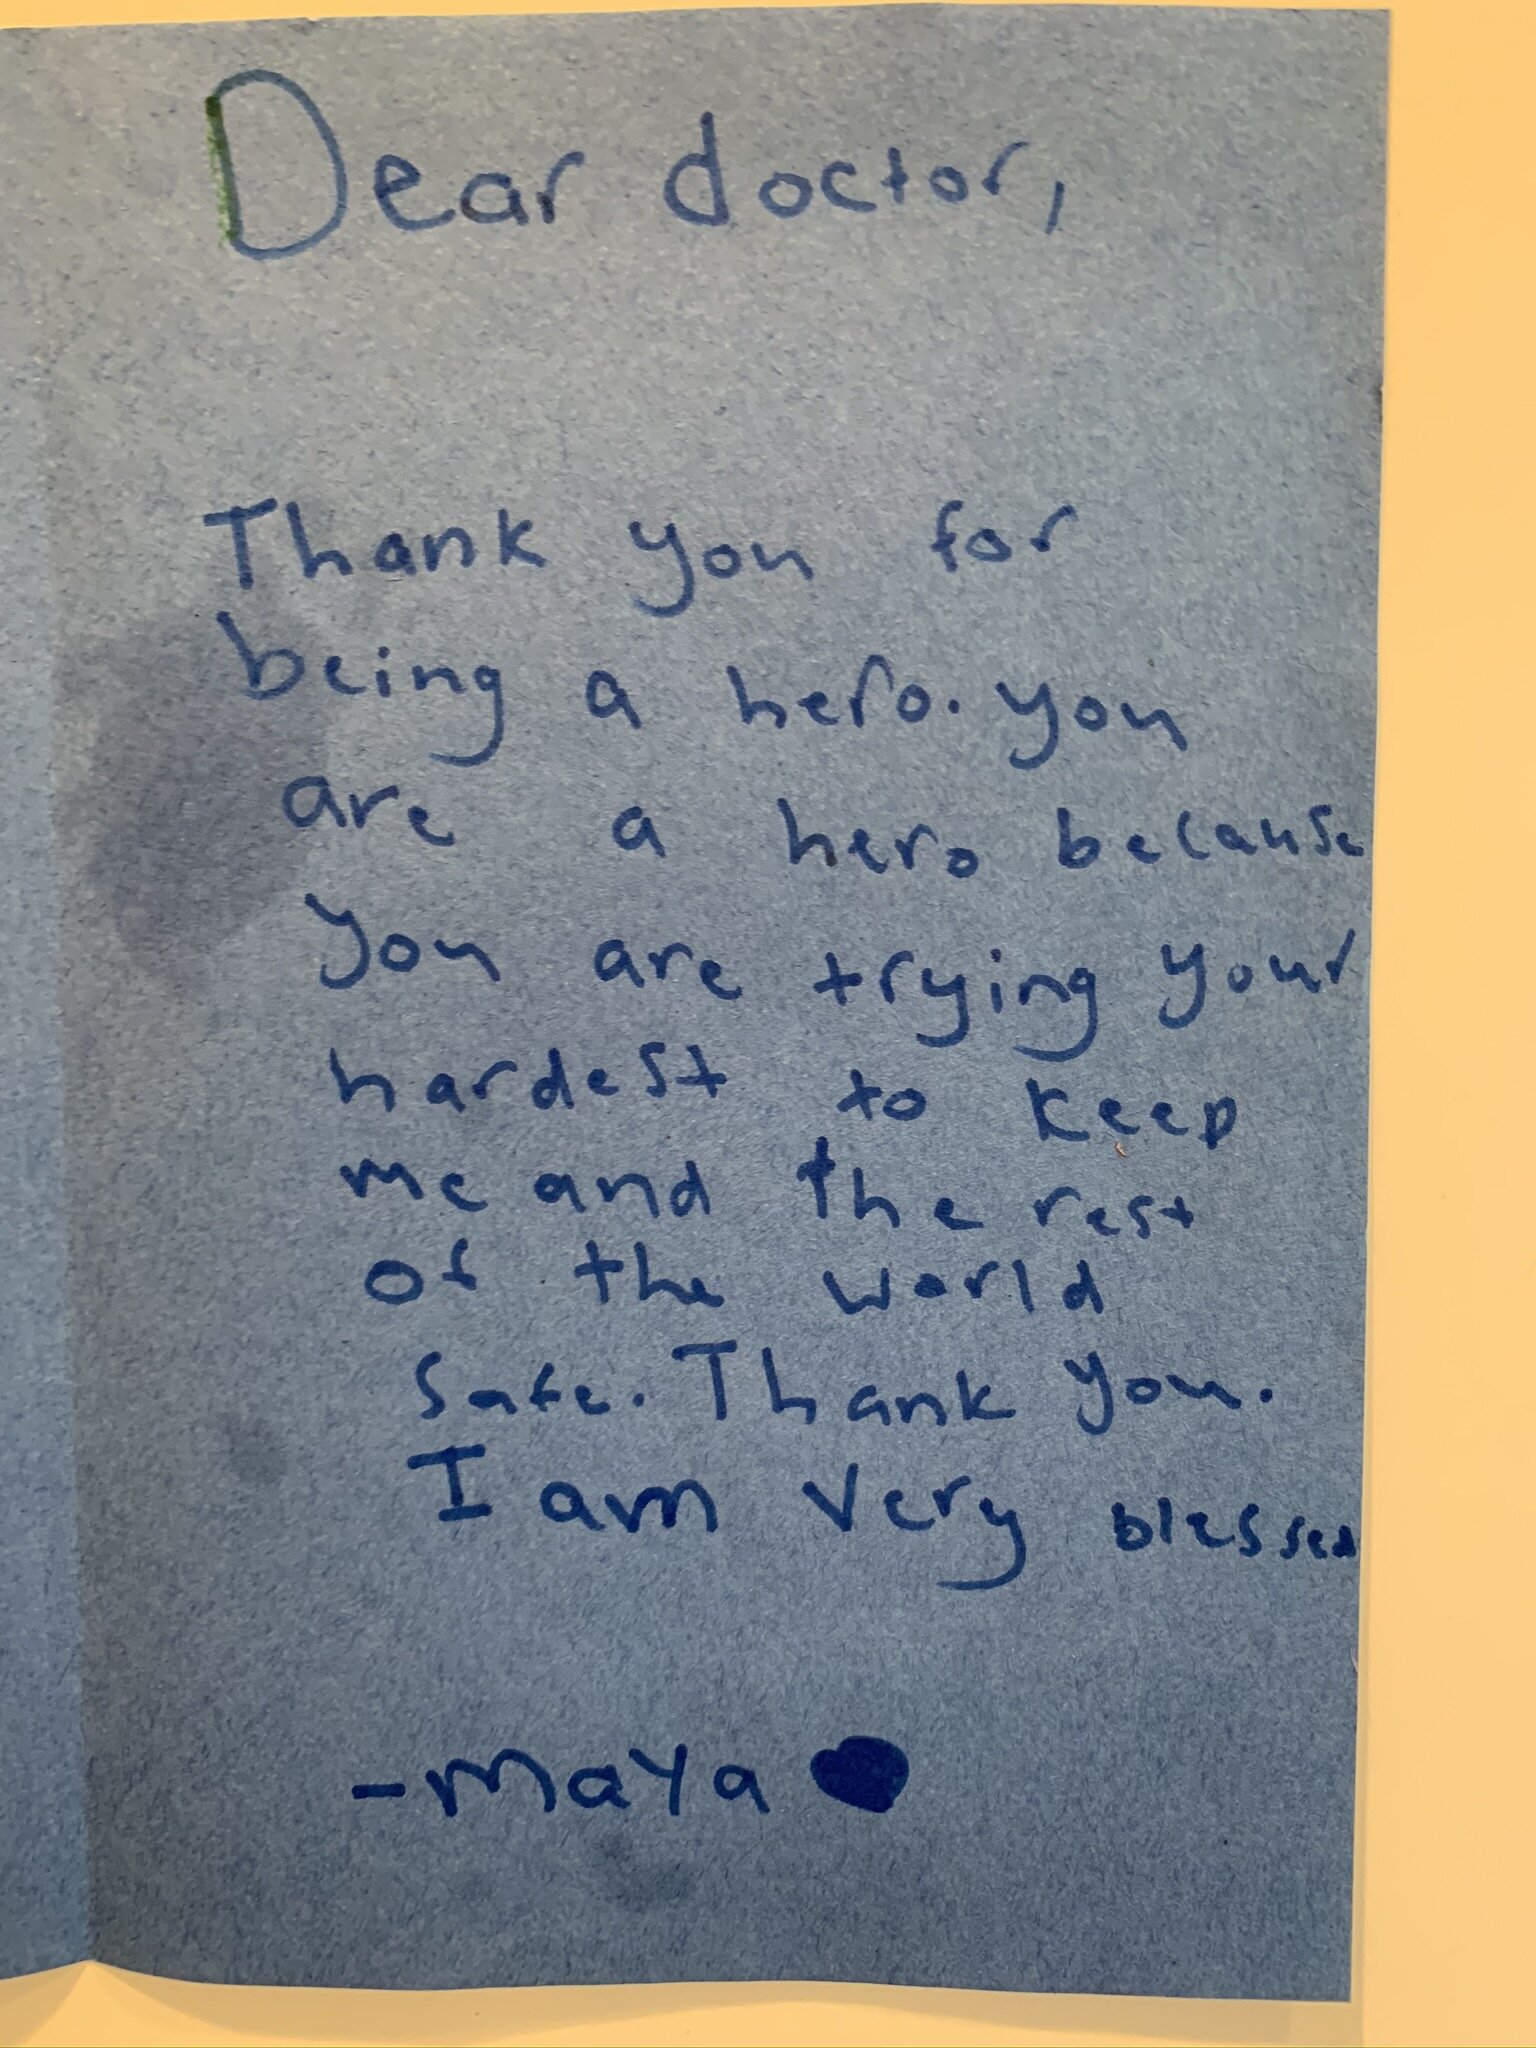 Dear doctor,
Thank you for
being a hero. you
are a hero because
you are trying your
hardest to keep
me and the rest
of the world
safe. Thank you.
I am very blessed
-Maya